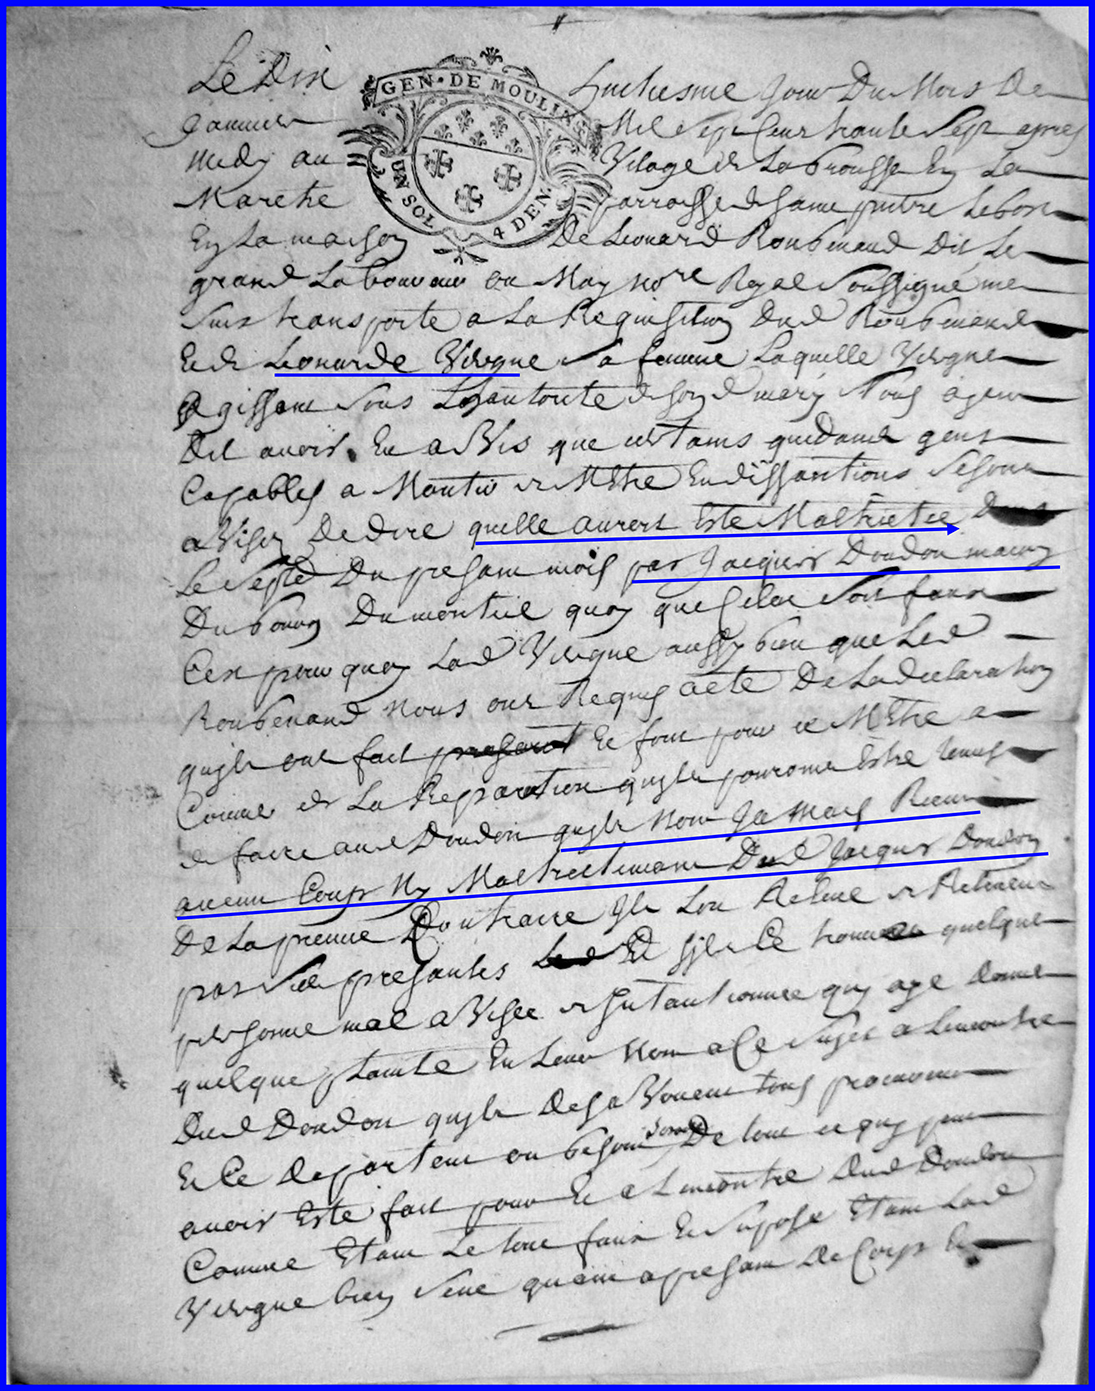 Le Dix huitiesme Jour Du Mois De
GEN · DE MOULINS
UN SOL 4 DEN.
Janvier Mil Sept Cens trante Sept apres
midy au Vilage de La brousse En La
Marche parroisse de Saint pierre Lebost
En La maison De Leonard Roubenaud Dit Le
grand La ou Moy no.re Royal Soussigné me
Suis transporté a La Requisition Dud Roubenaud
Et de Leonarde Vergne Sa femme Laquelle Vergne
agissant Sous Lautorité de Sond mary Nous ayant
Dit avoir Eu avis que certains quidams gens
Capables a Mantir et Mettre En dissantions Se sont
avisez De dire quelle auroit Esté Maltrietée
Le Septe Du presant mois par Jacques Doudon
Du bourg Du monteil quoy que Cela Soit faux
Cest pour quoy Lad Vergne aussy bien que Led
Roubenaud nous ont Requis acte De La declaration
quils ont fait Et font pour ce Mettre a
Couvert de La Reparation quils pouroint Estre tenus
de faire aud Doudon quils Nont Jamais Receu
aucun Coups Ny Maltrietement Dud Jacques Doudon
De La prenne Don traire Ils Lon
par Ses presantes Et Sil Ce trouve quelque
personne mal aVisée et Intantionnée qui aye donné
quelque plainte En Leur Nom a Ce Sujet a Lencontre
Dud Doudon quils Desavouent tous
Et Ce departent ou besoin seroit De tout ce qui peut
avoir Esté fait pour Ec a Lencontre Dud Doudon
Comme Etant Le tout faux Et Suposé Etant Lad
Vergne bien Sene quant a presant De Corps Et